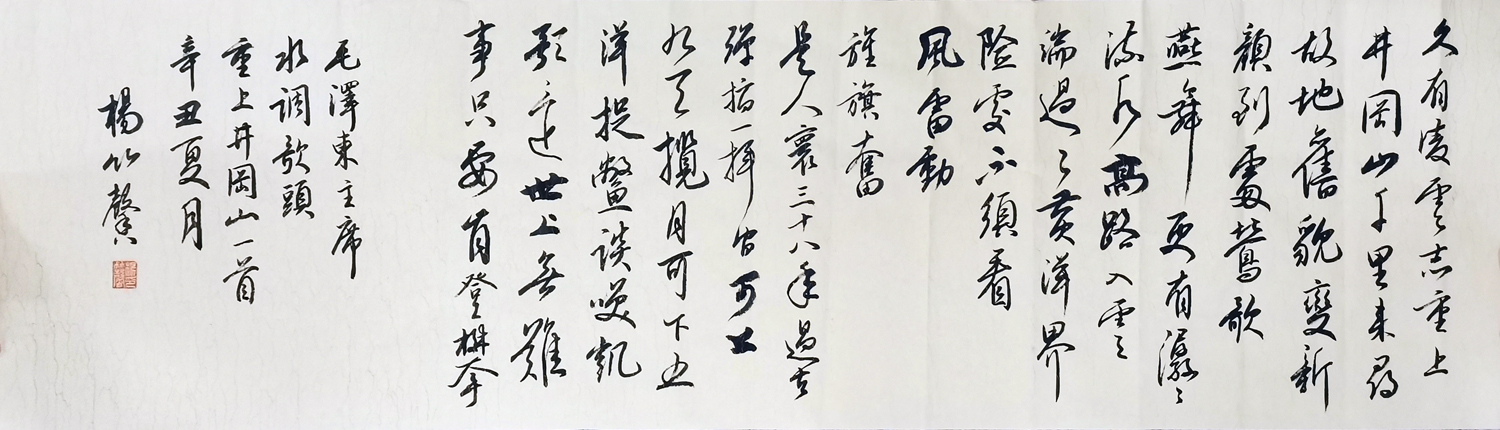 久有凌雲志重上
井岡山千里来尋
故地舊貌變新
顔到處鶯歌
燕舞更有潺々
流水高路入雲
端過了黄洋界
险處不須看
風雷動
旌旗奮
是人寰三十八年過去
弹指一揮间可上
九天攬月可下五
洋捉鳖談笑凱
歌还世上無難
事只要肯登攀
毛澤東主席
水調歌頭
重上井岡山一首
辛丑夏月
楊竹馨